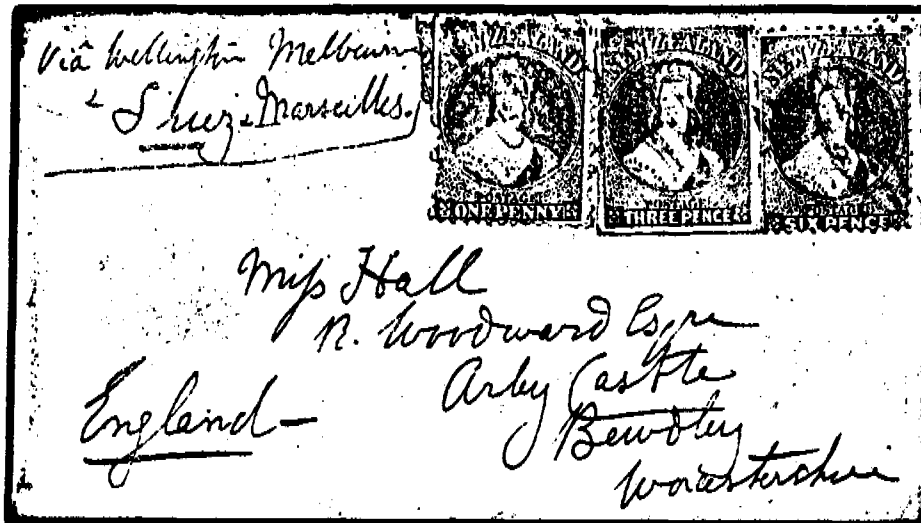 Via Wellington Melbourne
& Suez & Marseilles.
NEW ZEALAND
POSTAGE
ONE PENNY
NEW ZEALAND
POSTAGE
THREE PENCE
NEW ZEALAND
POSTAGE
SIX PENCE
Miss Hall
R. Woodward Esqre
Arby Castle
Bewdley
Worcestershire
England